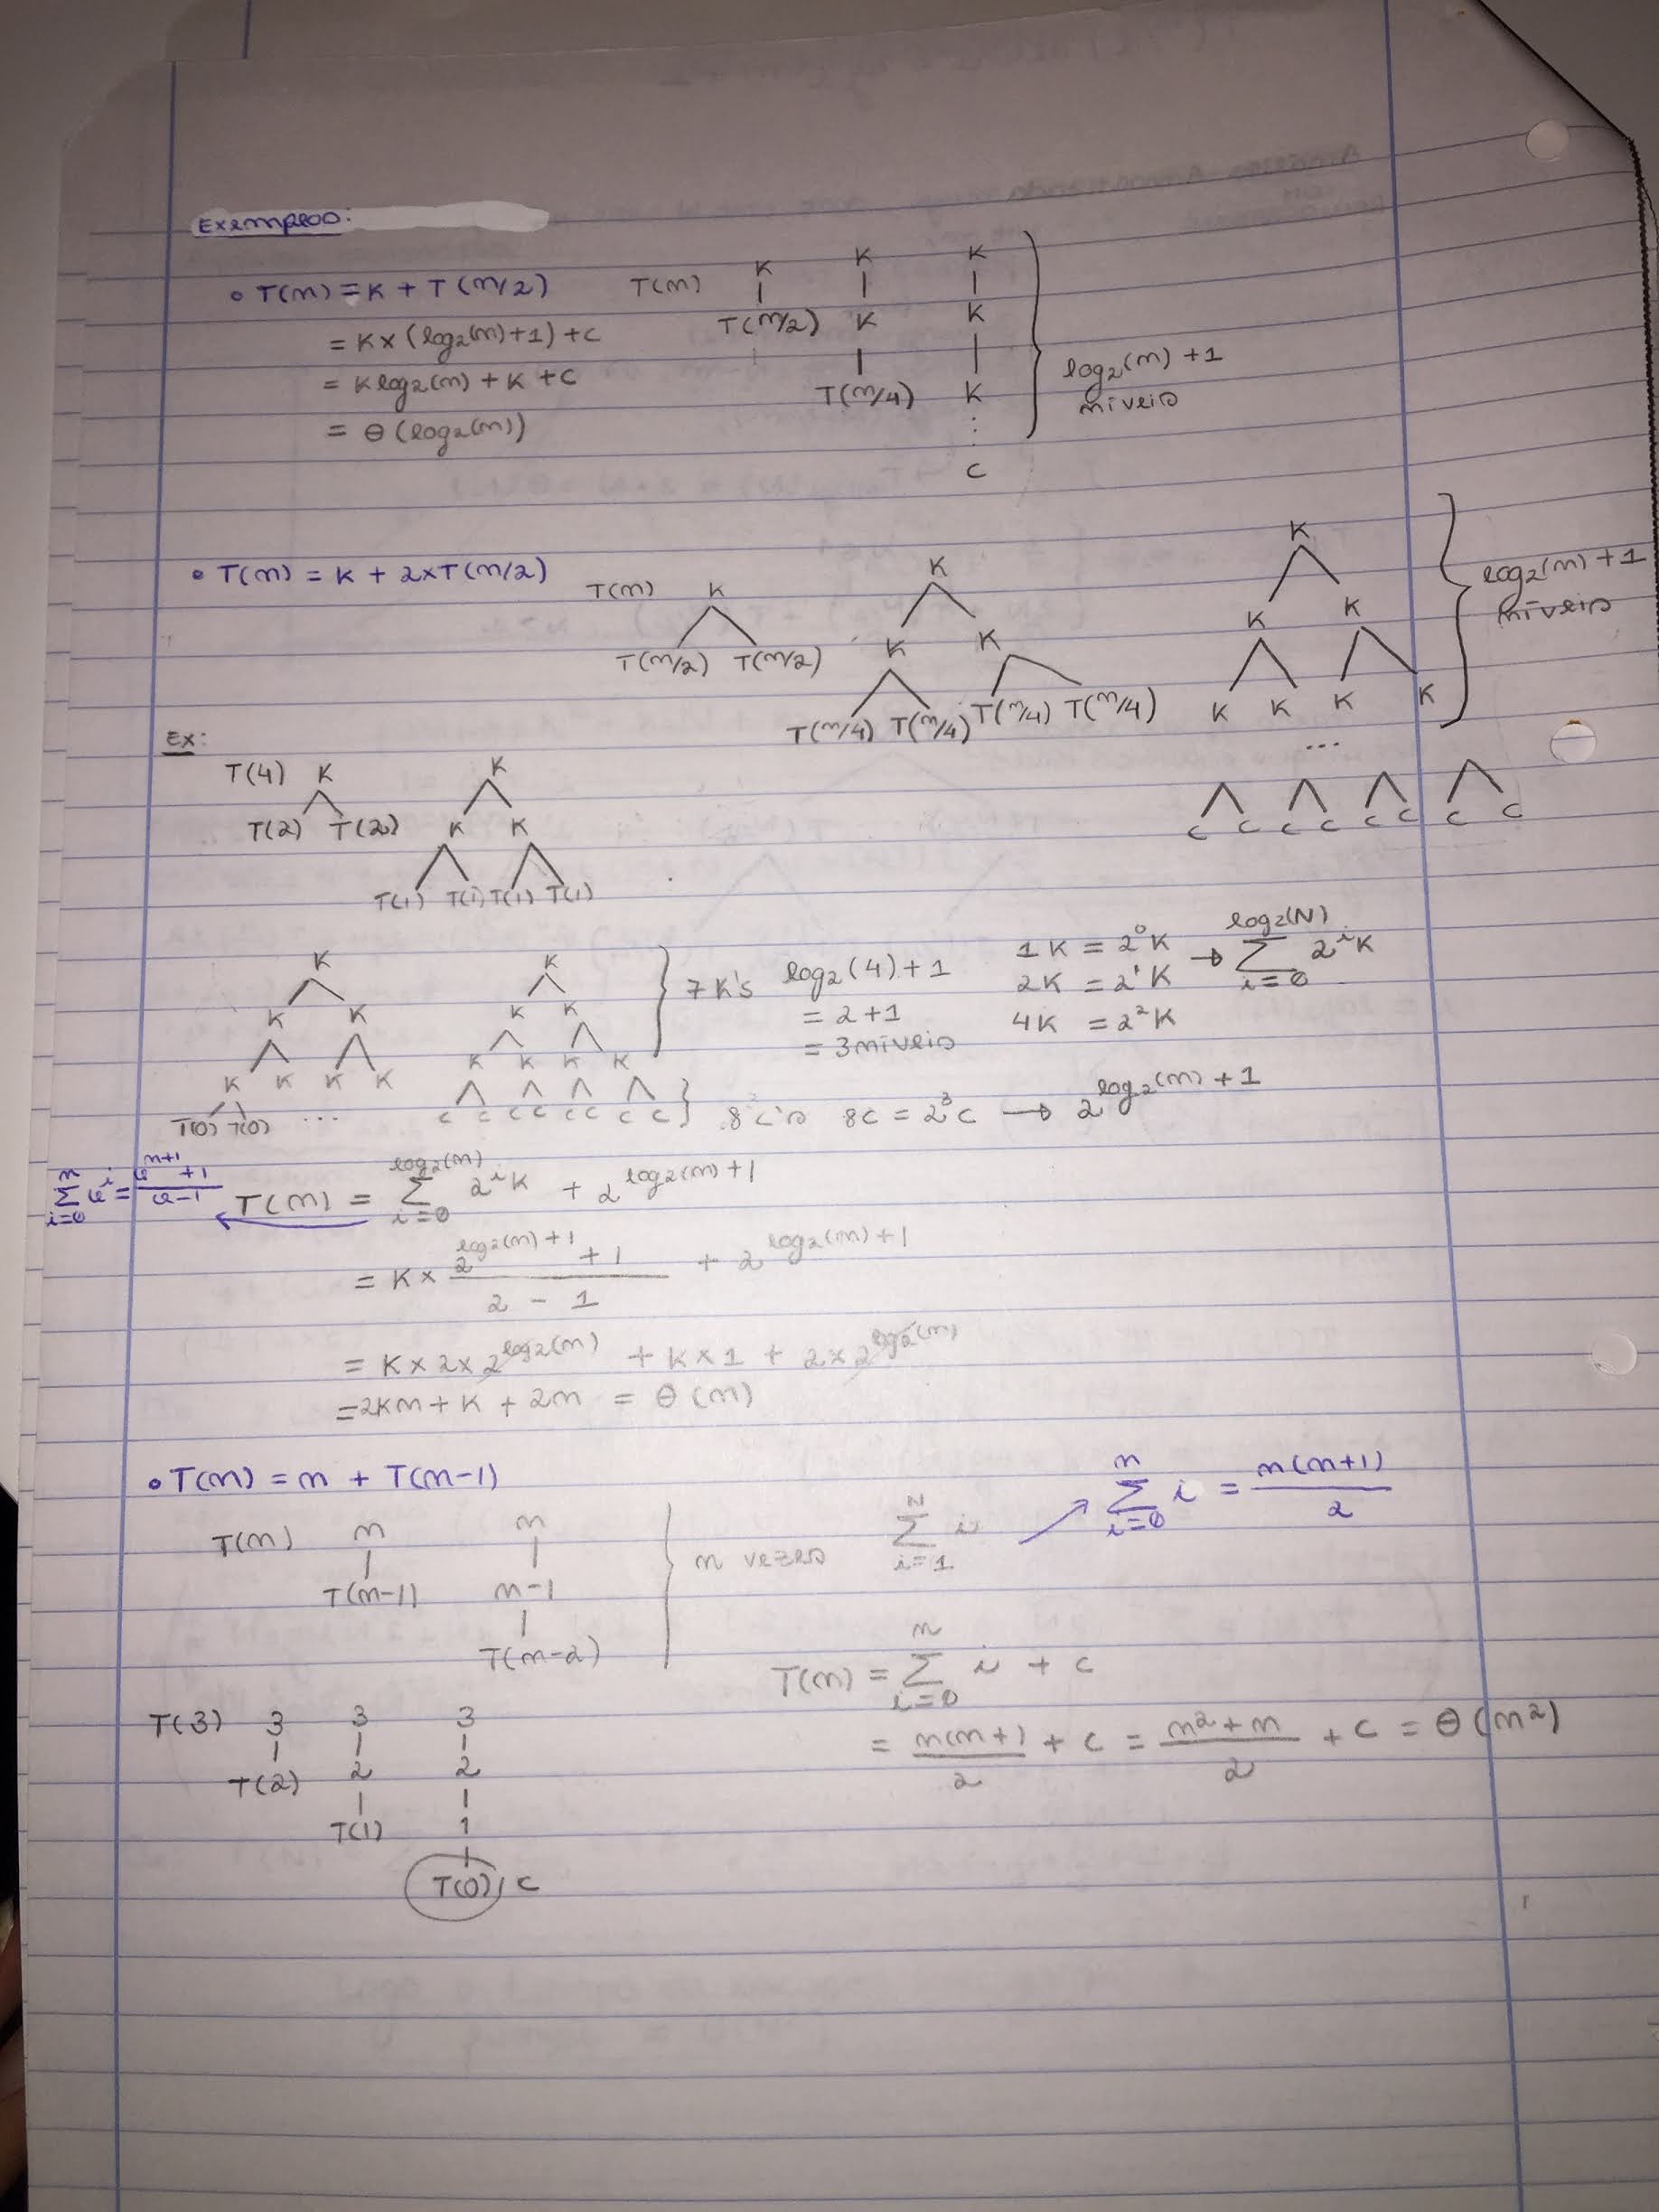 Exemplos:
• T(n) = K + T(n/2)
= K × (log₂(n)+1) + c
= K log₂(n) + K + c
= Θ(log₂(n))
T(n) K K K
T(n/2) K K
T(n/4) K
⋮
c
log₂(n) + 1
níveis
• T(n) = K + 2×T(n/2)
T(n) K K K
T(n/2) T(n/2) K K K K
T(n/4) T(n/4) T(n/4) T(n/4) K K K K
...
c c c c c c c c
log₂(n) + 1
níveis
Ex:
T(4) K K
T(2) T(2) K K
T(1) T(1) T(1) T(1)
K K
K K K K
K K K K K K K K
T(0) T(0) ... c c c c c c c c
7 K's
log₂(4) + 1
= 2 + 1
= 3 níveis
1K = 2⁰K
2K = 2¹K
4K = 2²K
→ ∑_{i=0}^{log₂(N)} 2ⁱK
8 c's 8c = 2³c → 2^{log₂(n)+1}
∑_{i=0}^{n} aⁱ = (a^{n+1} + 1)/(a-1)
T(n) = ∑_{i=0}^{log₂(n)} 2ⁱK + 2^{log₂(n)+1}
= K × (2^{log₂(n)+1} + 1)/(2 - 1) + 2^{log₂(n)+1}
= K × 2 × 2^{log₂(n)} + K × 1 + 2 × 2^{log₂(n)}
= 2Kn + K + 2n = Θ(n)
• T(n) = n + T(n-1)
T(n) n n
T(n-1) n-1
T(n-2)
n vezes
∑_{i=1}^{N} i
∑_{i=0}^{n} i = n(n+1)/2
T(n) = ∑_{i=0}^{n} i + c
= n(n+1)/2 + c = (n²+n)/2 + c = Θ(n²)
T(3) 3 3 3
T(2) 2 2
T(1) 1
T(0) / c